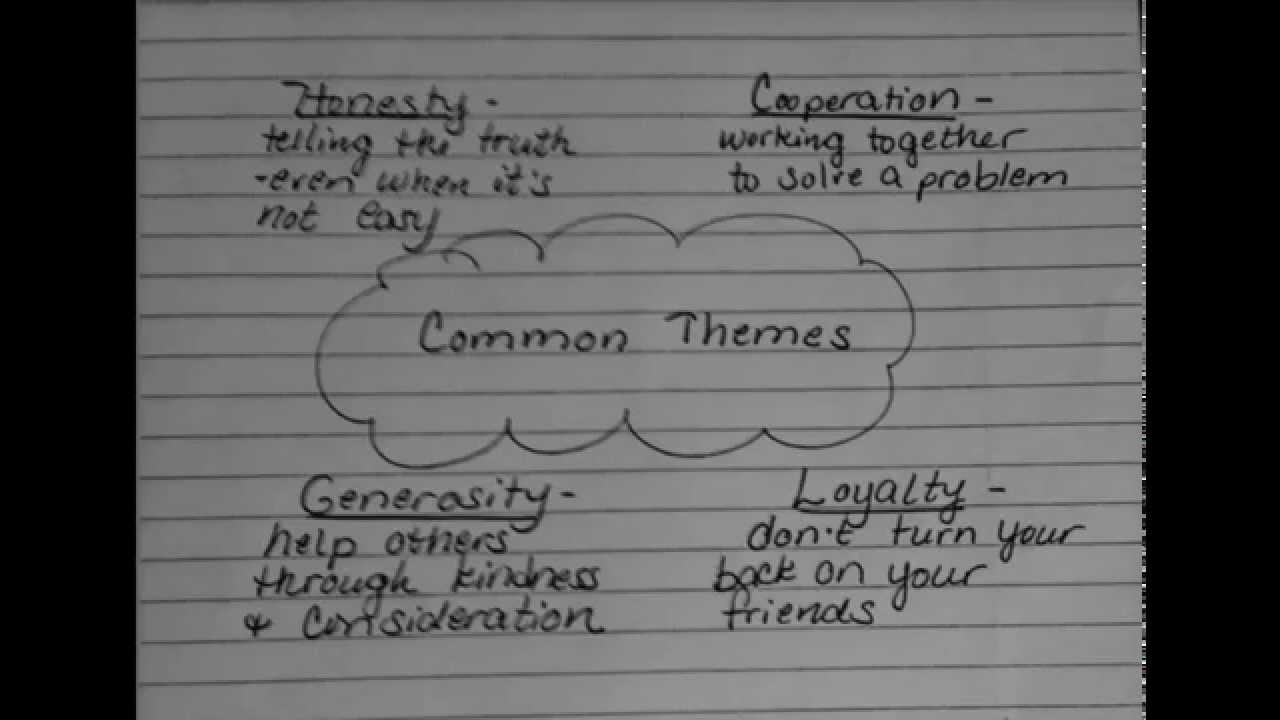 Honesty -
telling the truth
-even when it's
not easy
Cooperation -
working together
to solve a problem
Common Themes
Generasity -
help others
through kindness
& consideration
Loyalty -
don't turn your
back on your
friends